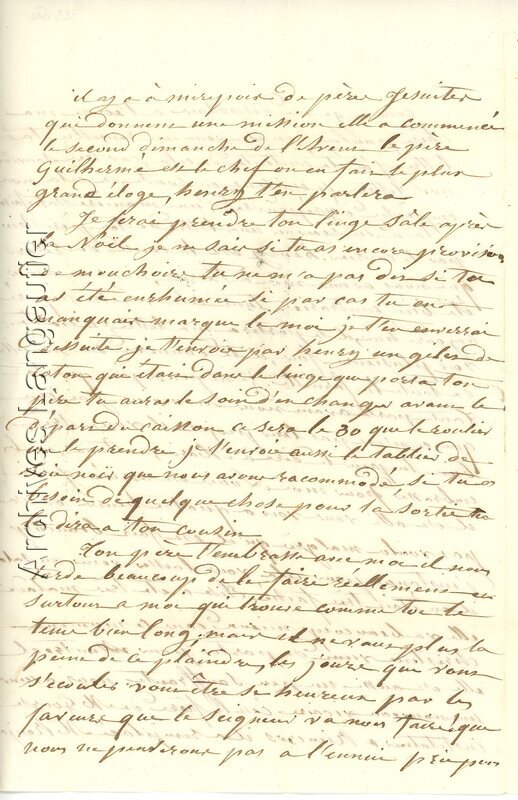 il y a à mirepoix de père Jesuites
qui donnene une mission elle a commencé
le second dimanche de l'Avent le père
Guilhermé est le chef on en fait le plus
grand éloge, henry t'en parlera
Je ferai prendre ton linge sâle après
la Noël, je ne sais si tu as encore provision
de mouchoirs tu ne m'a pas dis si tu
as été enrhumée si par cas tu en
manquais marque le moi je t'en enverrai
dessuite, je t'envoie par henry un gilet de
coton qui était dans le linge que porta ton
père tu auras le soin d'en changer avant le
départ du caisson ce sera le 30 que le roulier
le prendre je t'envoie aussi le tablier de
noir que nous avons racommodé si tu as
besoin de quelque chose pour la sortie tu
le dira a ton cousin
Ton père t'embrasse avec moi il nous
tarde beaucoup de le faire réellement
surtout a moi qui trouve comme toi le
tems bien long, mais il ne vaut plus la
peine de ce plaindre, les jours que vous
s'écouler vont être si heureux par les
faveurs que le Seigneur va nous faire, que
nous ne penserons pas a l'ennui
Archives Langautier